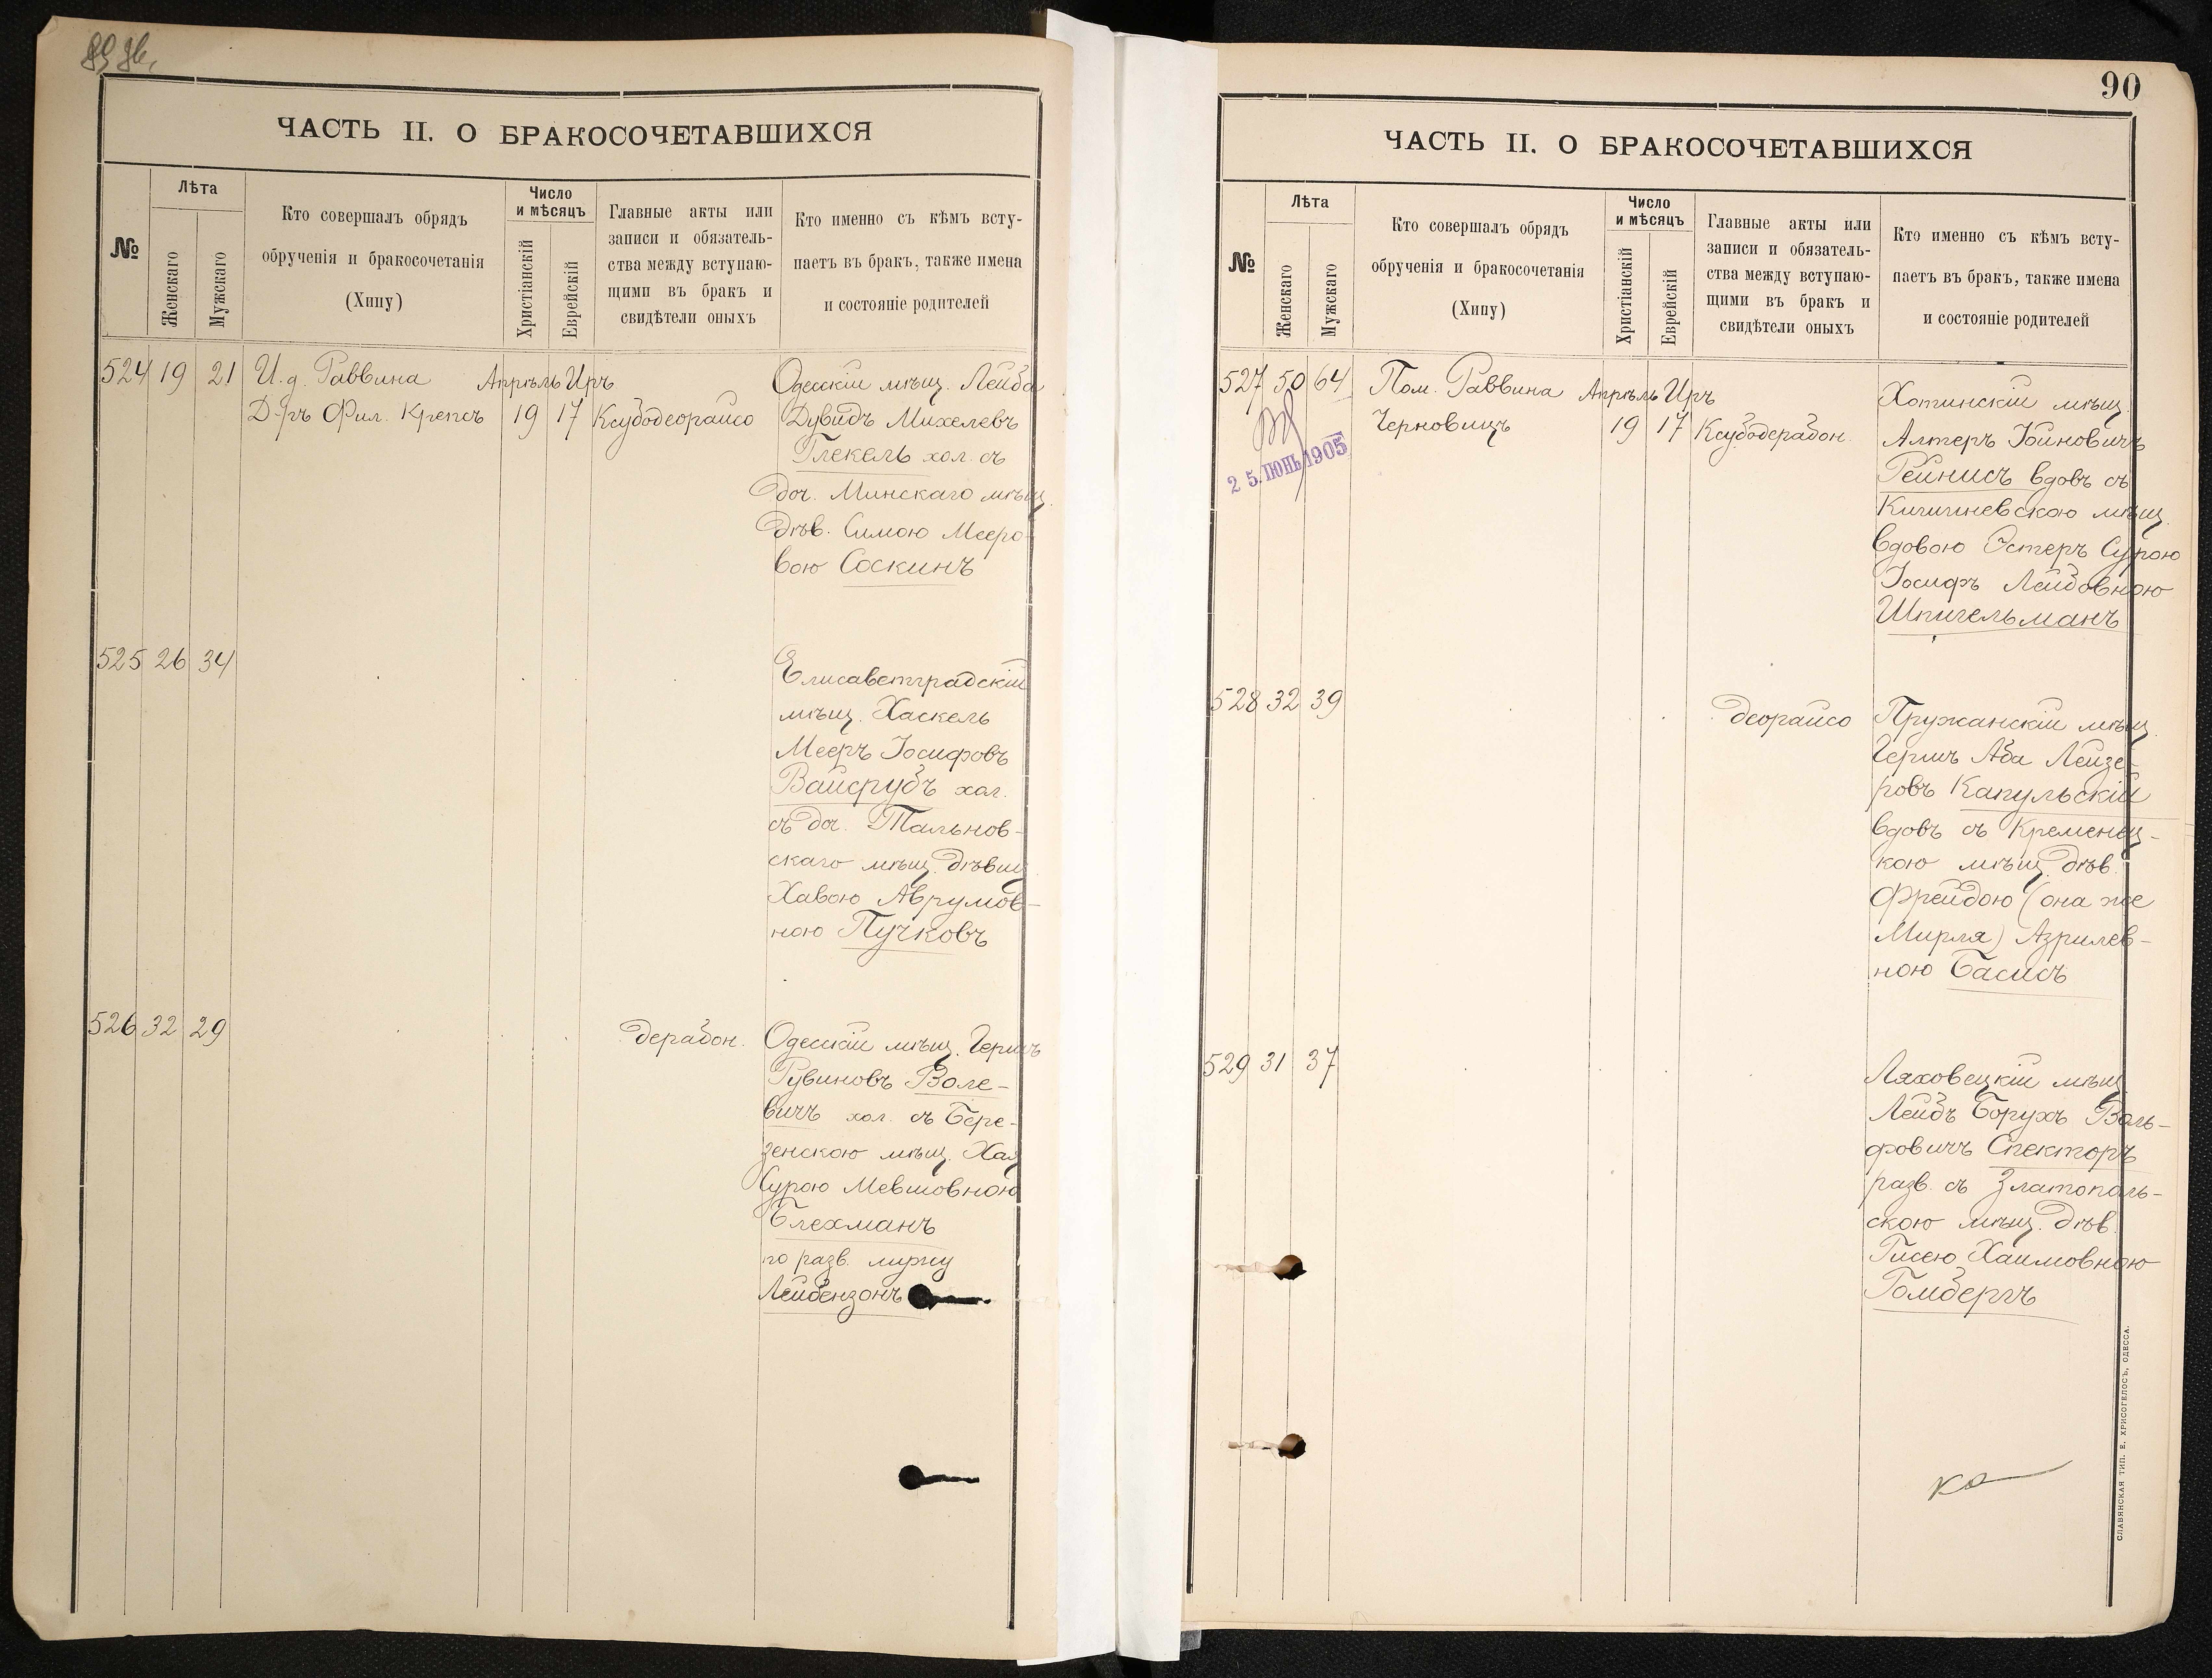 ЧАСТЬ II. О БРАКОСОЧЕТАВШИХСЯ
№
Лѣта
Женскаго
Мужскаго
Кто совершалъ обрядъ
обрученія и бракосочетанія
(Хипу)
Число
и мѣсяцъ
Христіанскій
Еврейскій
Главные акты или
записи и обязатель-
ства между вступаю-
щими въ бракъ и
свидѣтели оныхъ
Кто именно съ кѣмъ всту-
паетъ въ бракъ, также имена
и состояніе родителей
524 19 21
И. д. Раввина
Д-ръ Фил. Крепсъ
Апрѣль Иръ
19 17
Ксубодеорайсо
Одесскій мѣщ. Лейба
Дувидъ Михелевъ
Глекель хол. съ
доч. Минскаго мѣщ.
дѣв. Симою Мееро-
вою Соскинъ
525 26 34
Елисаветградскій
мѣщ. Хаскель
Мееръ Іосифовъ
Вайсрубъ хол.
съ доч. Тальнов-
скаго мѣщ. дѣвиц.
Хавою Аврумов-
ною Пучковъ
526 32 29
дерабон.
Одесскій мѣщ. Гершъ
Рувиновъ Воле-
вичъ хол. съ Бере-
зенскою мѣщ. Хая
Сурою Мевшовною
Блехманъ
по разв. мужу
Лейбензонъ
90
ЧАСТЬ II. О БРАКОСОЧЕТАВШИХСЯ
№
Лѣта
Женскаго
Мужскаго
Кто совершалъ обрядъ
обрученія и бракосочетанія
(Хипу)
Число
и мѣсяцъ
Христіанскій
Еврейскій
Главные акты или
записи и обязатель-
ства между вступаю-
щими въ бракъ и
свидѣтели оныхъ
Кто именно съ кѣмъ всту-
паетъ въ бракъ, также имена
и состояніе родителей
527 50 64
25. ІЮНЬ 1905
Пом. Раввина
Черновицъ
Апрѣль Иръ
19 17
Ксубодерабон.
Хотинскій мѣщ.
Алтеръ Іойновичъ
Рейнисъ вдовъ съ
Кишиневскою мѣщ.
вдовою Эстеръ Сурою
Іосифъ Лейбовною
Шпигельманъ
528 32 39
деорайсо
Пружанскій мѣщ.
Гершъ Аба Лейзе-
ровъ Капульскій
вдовъ съ Кременец-
кою мѣщ. дѣв.
Фрейдою (она же
Мирля) Азрилев-
ною Басисъ
529 31 37
Ляховецкій мѣщ.
Лейбъ Борухъ Воль-
фовичъ Спекторъ
разв. съ Златополь-
скою мѣщ. дѣв.
Гисею Хаимовною
Гомбергъ
СЛАВЯНСКАЯ ТИП. Е. ХРИСОГЕЛОСЪ, ОДЕССА.